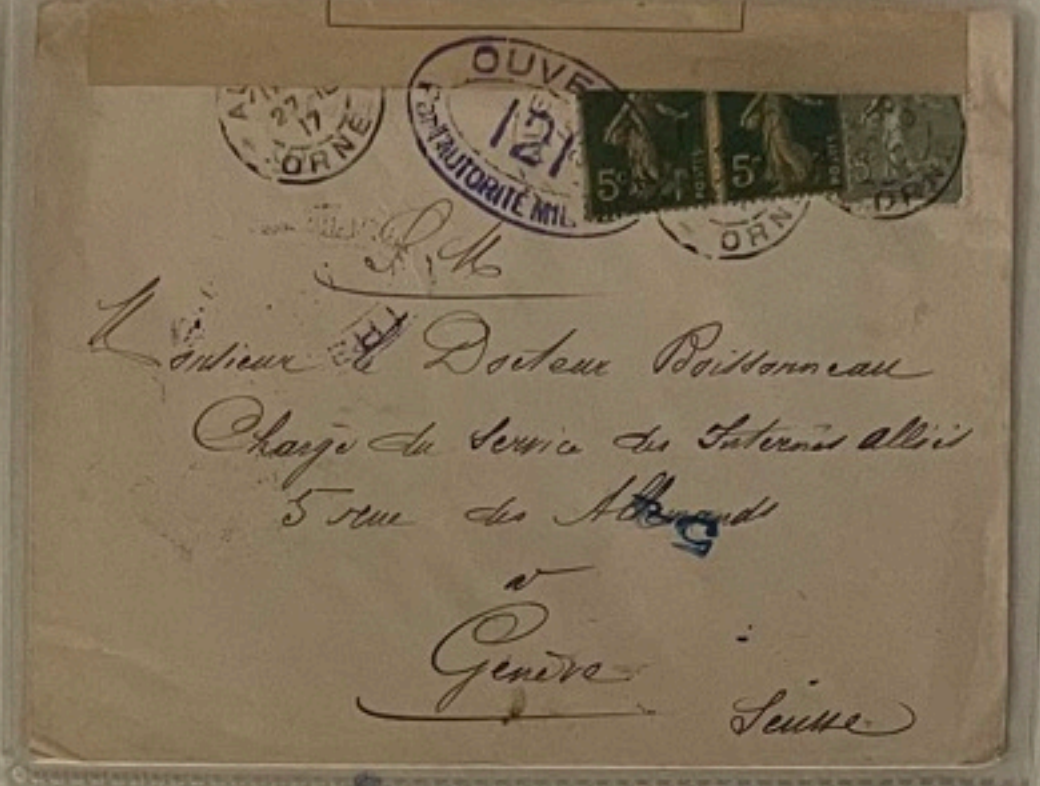 OUVE
121
PAR L'AUTORITÉ MIL
27-10
17
ORNE
5c
5c
POSTES
ORN
ORN
S. M.
Monsieur le Docteur Boissonneau
Chargé du Service des Internés alliés
5 rue des Allemands
à
Genève
Suisse